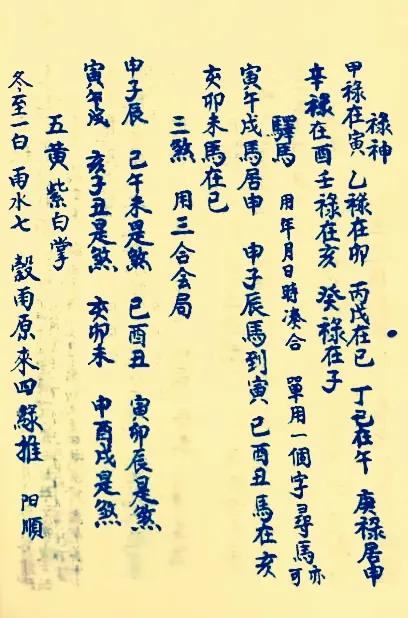 祿神
甲祿在寅 乙祿在卯 丙戊在巳 丁己在午 庚祿居申
辛祿在酉 壬祿在亥 癸祿在子
驛馬 用年月日時凑合 單用一個字尋馬亦可
寅午戌馬居申 申子辰馬到寅 巳酉丑馬在亥
亥卯未馬在巳
三煞 用三合会局
申子辰 巳午未是煞 巳酉丑 寅卯辰是煞
寅午戌 亥子丑是煞 亥卯未 申酉戌是煞
五黃紫白掌
冬至一白 雨水七 穀雨原來四綠推 阳順